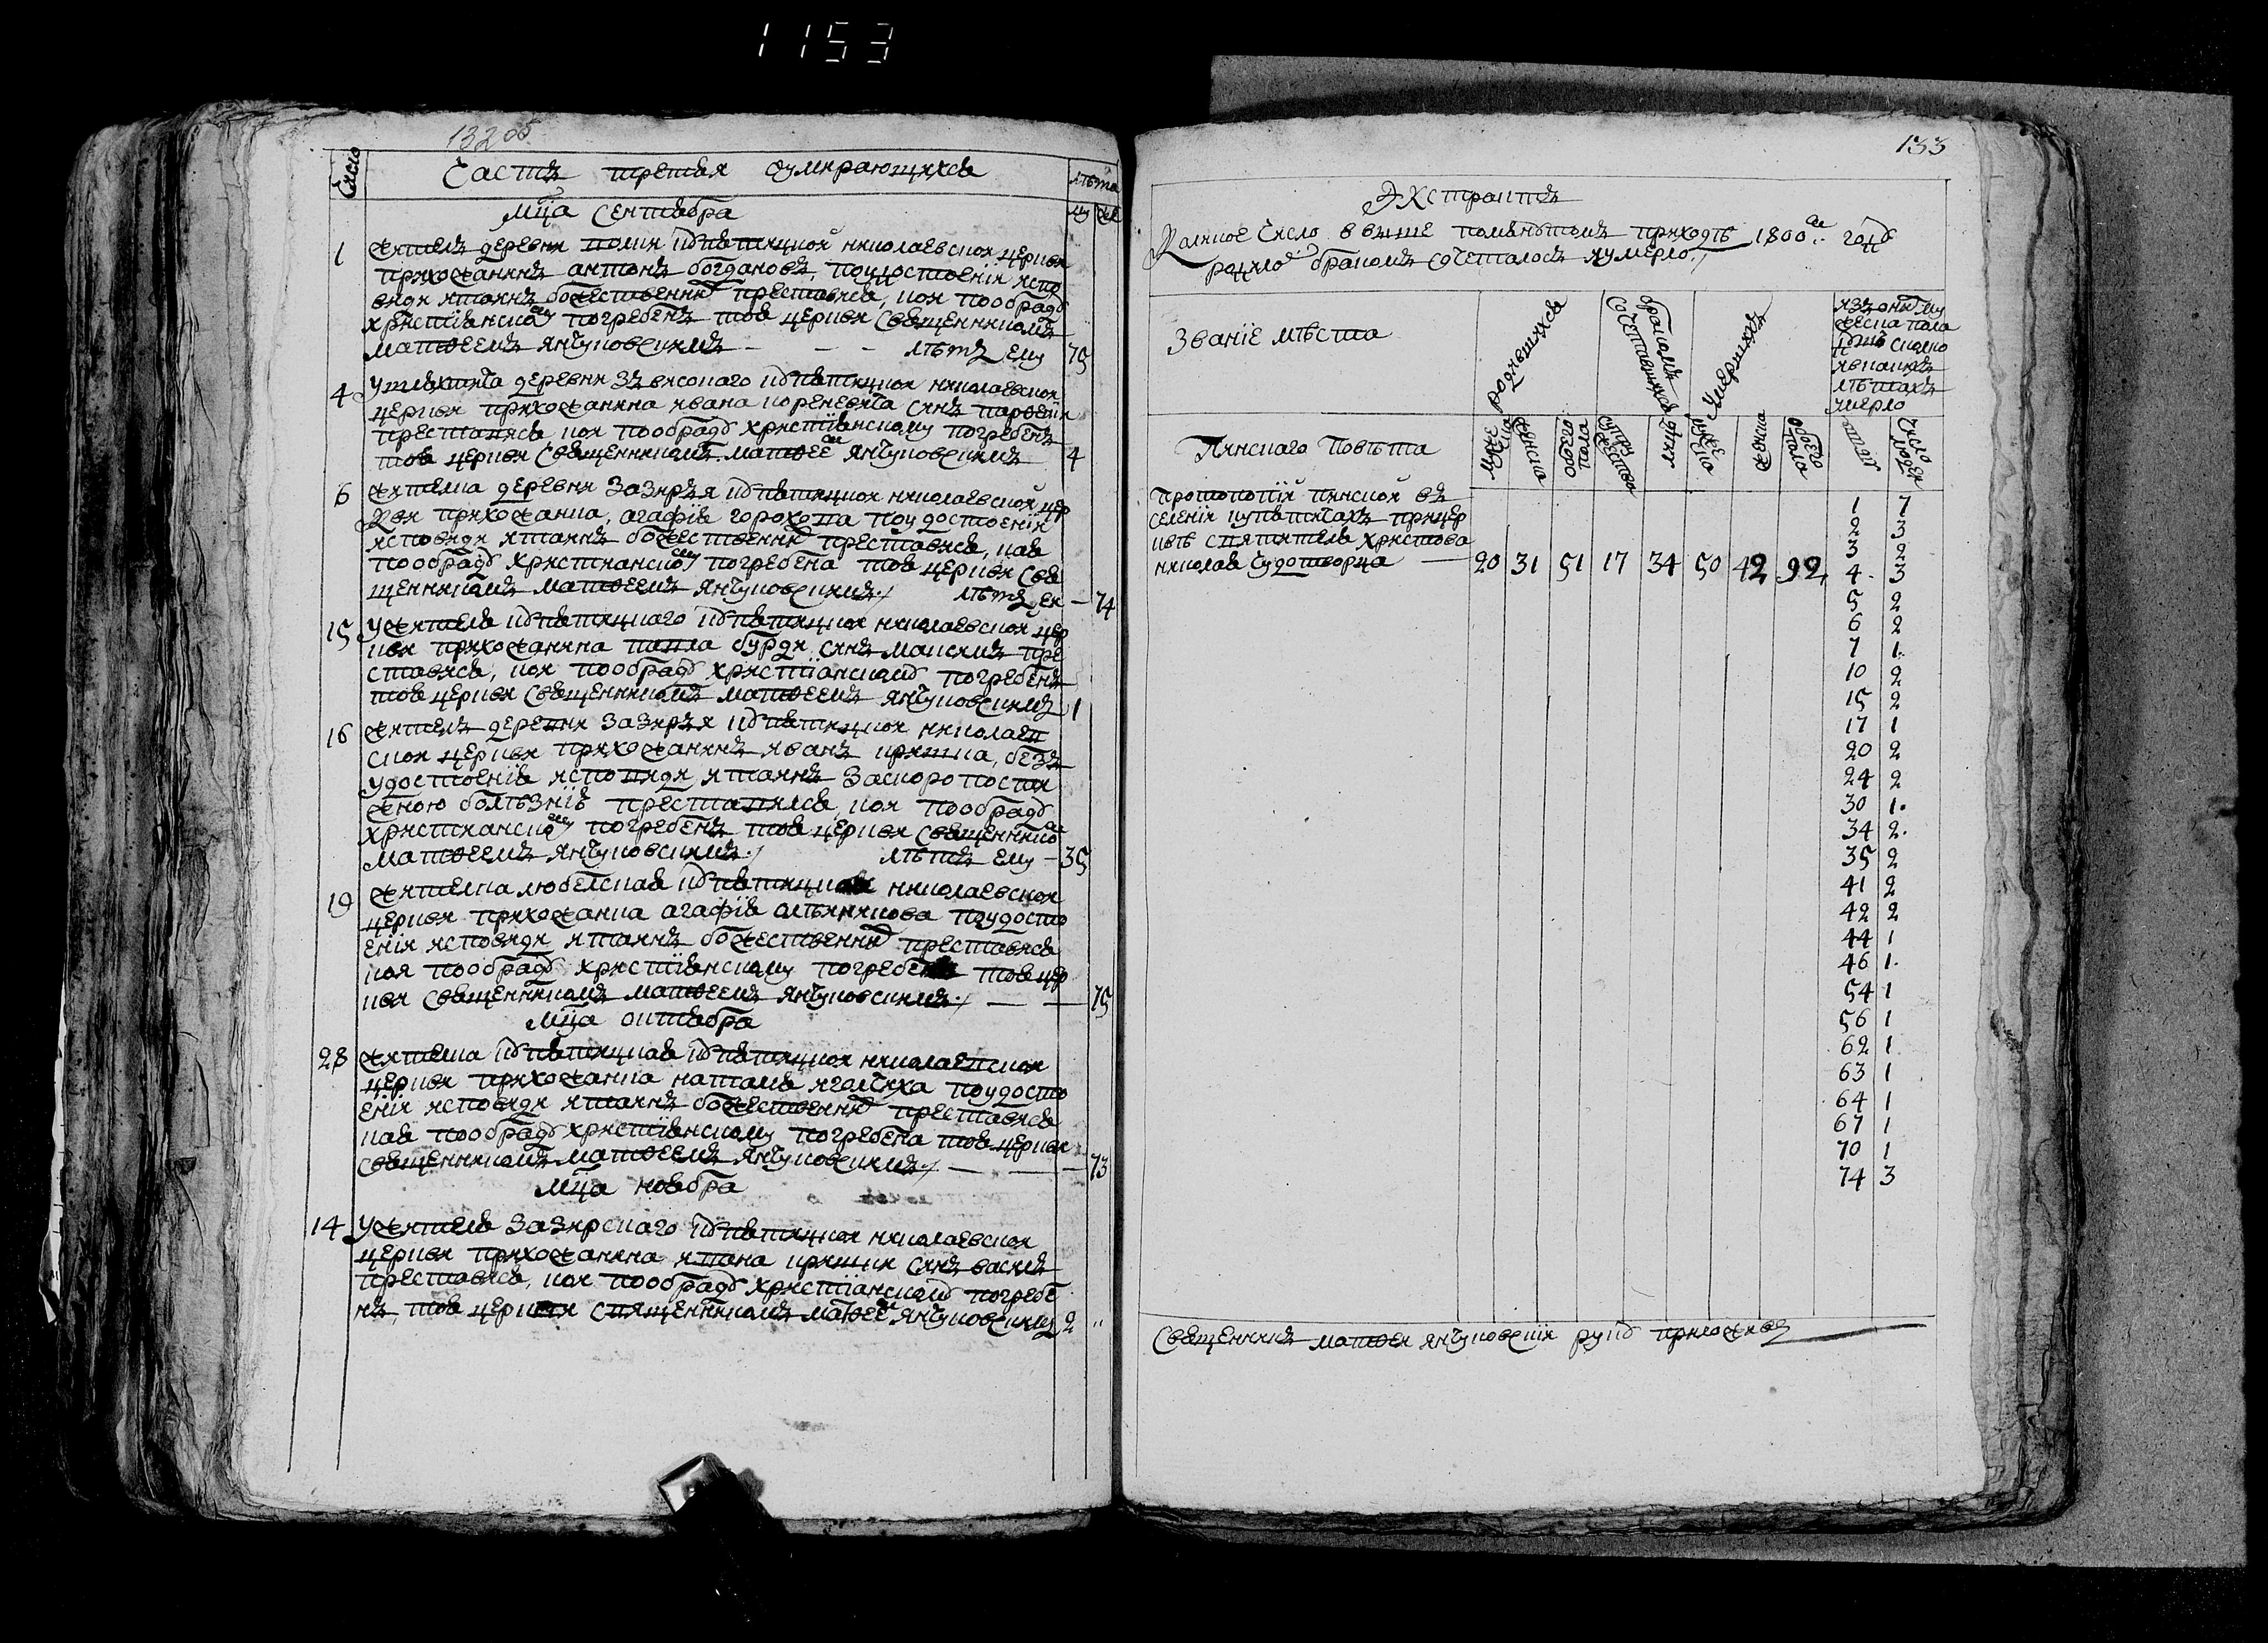 1153
132 об
Число
Часть третья оумирающихся
лѣта
му
же
Мца сентября
1 житель деревни купятицкой николаевской церкви
прихожанинъ антонъ богдановъ, поудостоенїи испо
вѣди итаинъ божественныхъ преставися, кой пообряду
христїянскому погребенъ тоя церкви священникомъ
матθеемъ янчуковскимъ — — — лѣтъ ему 75
4 деревни купятицкой николаевской
церкви прихожанина ивана сынъ парθенїи
преставися, кой пообряду христїянскому погребенъ
тоя церкви священникомъ матθеемъ янчуковскимъ 4
6 жителка деревни зазиръя купятицкой николаевской цер
кви прихожанка, агафїя поудостоенїи
исповѣди итаинъ божественныхъ преставися, коя
пообряду християнскому погребена тоя церкви свя
щенникомъ матθеемъ янчуковскимъ лѣтъ ей — 74
15 ужителя купятицкаго купятицкой николаевской цер
кви прихожанина павла сынъ максимъ пре
ставися, кой пообряду христїанскому погребенъ
тоя церкви священникомъ матθеемъ янчуковскимъ 1
16 житель деревни зазиръя купятицкой николаев
ской церкви прихожанинъ иванъ кришка, безъ
удостоенїя исповѣди итаинъ заскоропости
жною болѣзнїю преставился, кой пообряду
християнскому погребенъ тоя церкви священникомъ
матθеемъ янчуковскимъ лѣтъ ему — 35
19 жителка любелская купятицкой николаевской
церкви прихожанка агафїя поудосто
енїи исповѣди итаинъ божественныхъ преставися
коя пообряду христїянскому погребена тоя цер
кви священникомъ матθеемъ янчуковскимъ — — 75
Мца октября
28 жителка купятицкая купятицкой николаевской
церкви прихожанка наталя поудосто
енїи исповѣди итаинъ божественныхъ преставися
коя пообряду христїянскому погребена тоя церкви
священникомъ матθеемъ янчуковскимъ — — 73
Мца ноября
14 ужителя зазирскаго купятицкой николаевской
церкви прихожанина ивана кришки сынъ василь
преставися, кой пообряду христїанскому погребе
нъ, тоя церкви священникомъ матθеемъ янчуковскимъ 2
133
Экстрактъ
Коликое число ввыше помянутомъ приходѣ 1800м году
родило бракомъ сочеталось иумерло
Званїе мѣста
родившихся
бракомъ сочетавшихся
умершихъ
изъ оныхъ му
жеска пола
сколко
вкакихъ
лѣтахъ
умерло
Пинскаго повѣта
мужеска
женска
обоего пола
супружества
мужеска
женска
обоего пола
лѣта
число людей
протопопїи пинской въ
селенїи купятичахъ прицер
квѣ святителя христова
николая чудотворца — 20 31 51 17 34 50 42 92
1 7
2 3
3 2
4 3
5 2
6 2
7 1
10 2
15 2
17 1
20 2
24 2
30 1
34 2
35 2
41 2
42 2
44 1
46 1
54 1
56 1
62 1
63 1
64 1
67 1
70 1
74 3
Священникъ матθей янчуковскїй руку приложилъ